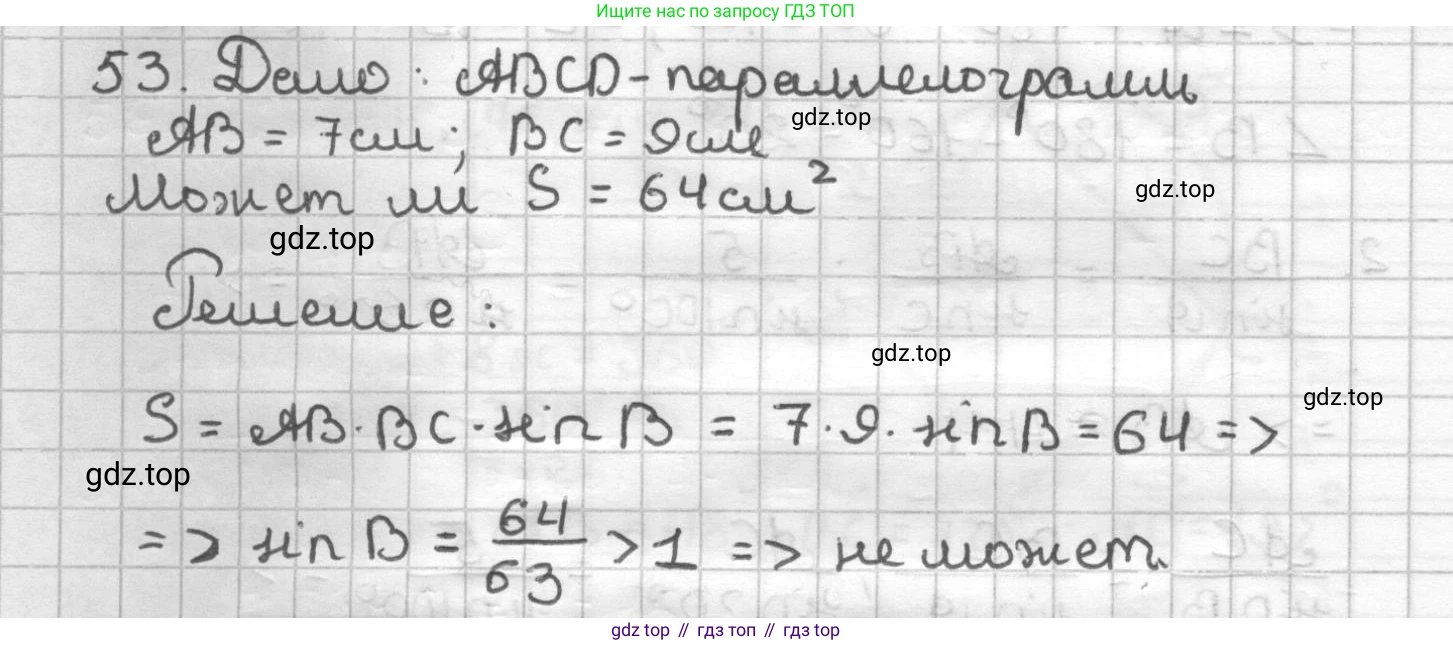 Ищите нас по запросу ГДЗ ТОП
53. Дано: ABCD - параллелограмм
AB = 7см; BC = 9см
gdz.top
Может ли S = 64см²
gdz.top
gdz.top
Решение:
gdz.top
gdz.top
S = AB · BC · sin B = 7 · 9 · sin B = 64 =>
gdz.top
=> sin B = 64/63 > 1 => не может.
gdz top // гдз топ // гдз top